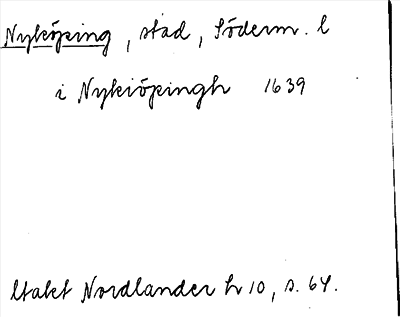 Nyköping, stad, Söderm. l
i Nykiöpingh 1639
ltakt Nordlander h 10, s. 64.